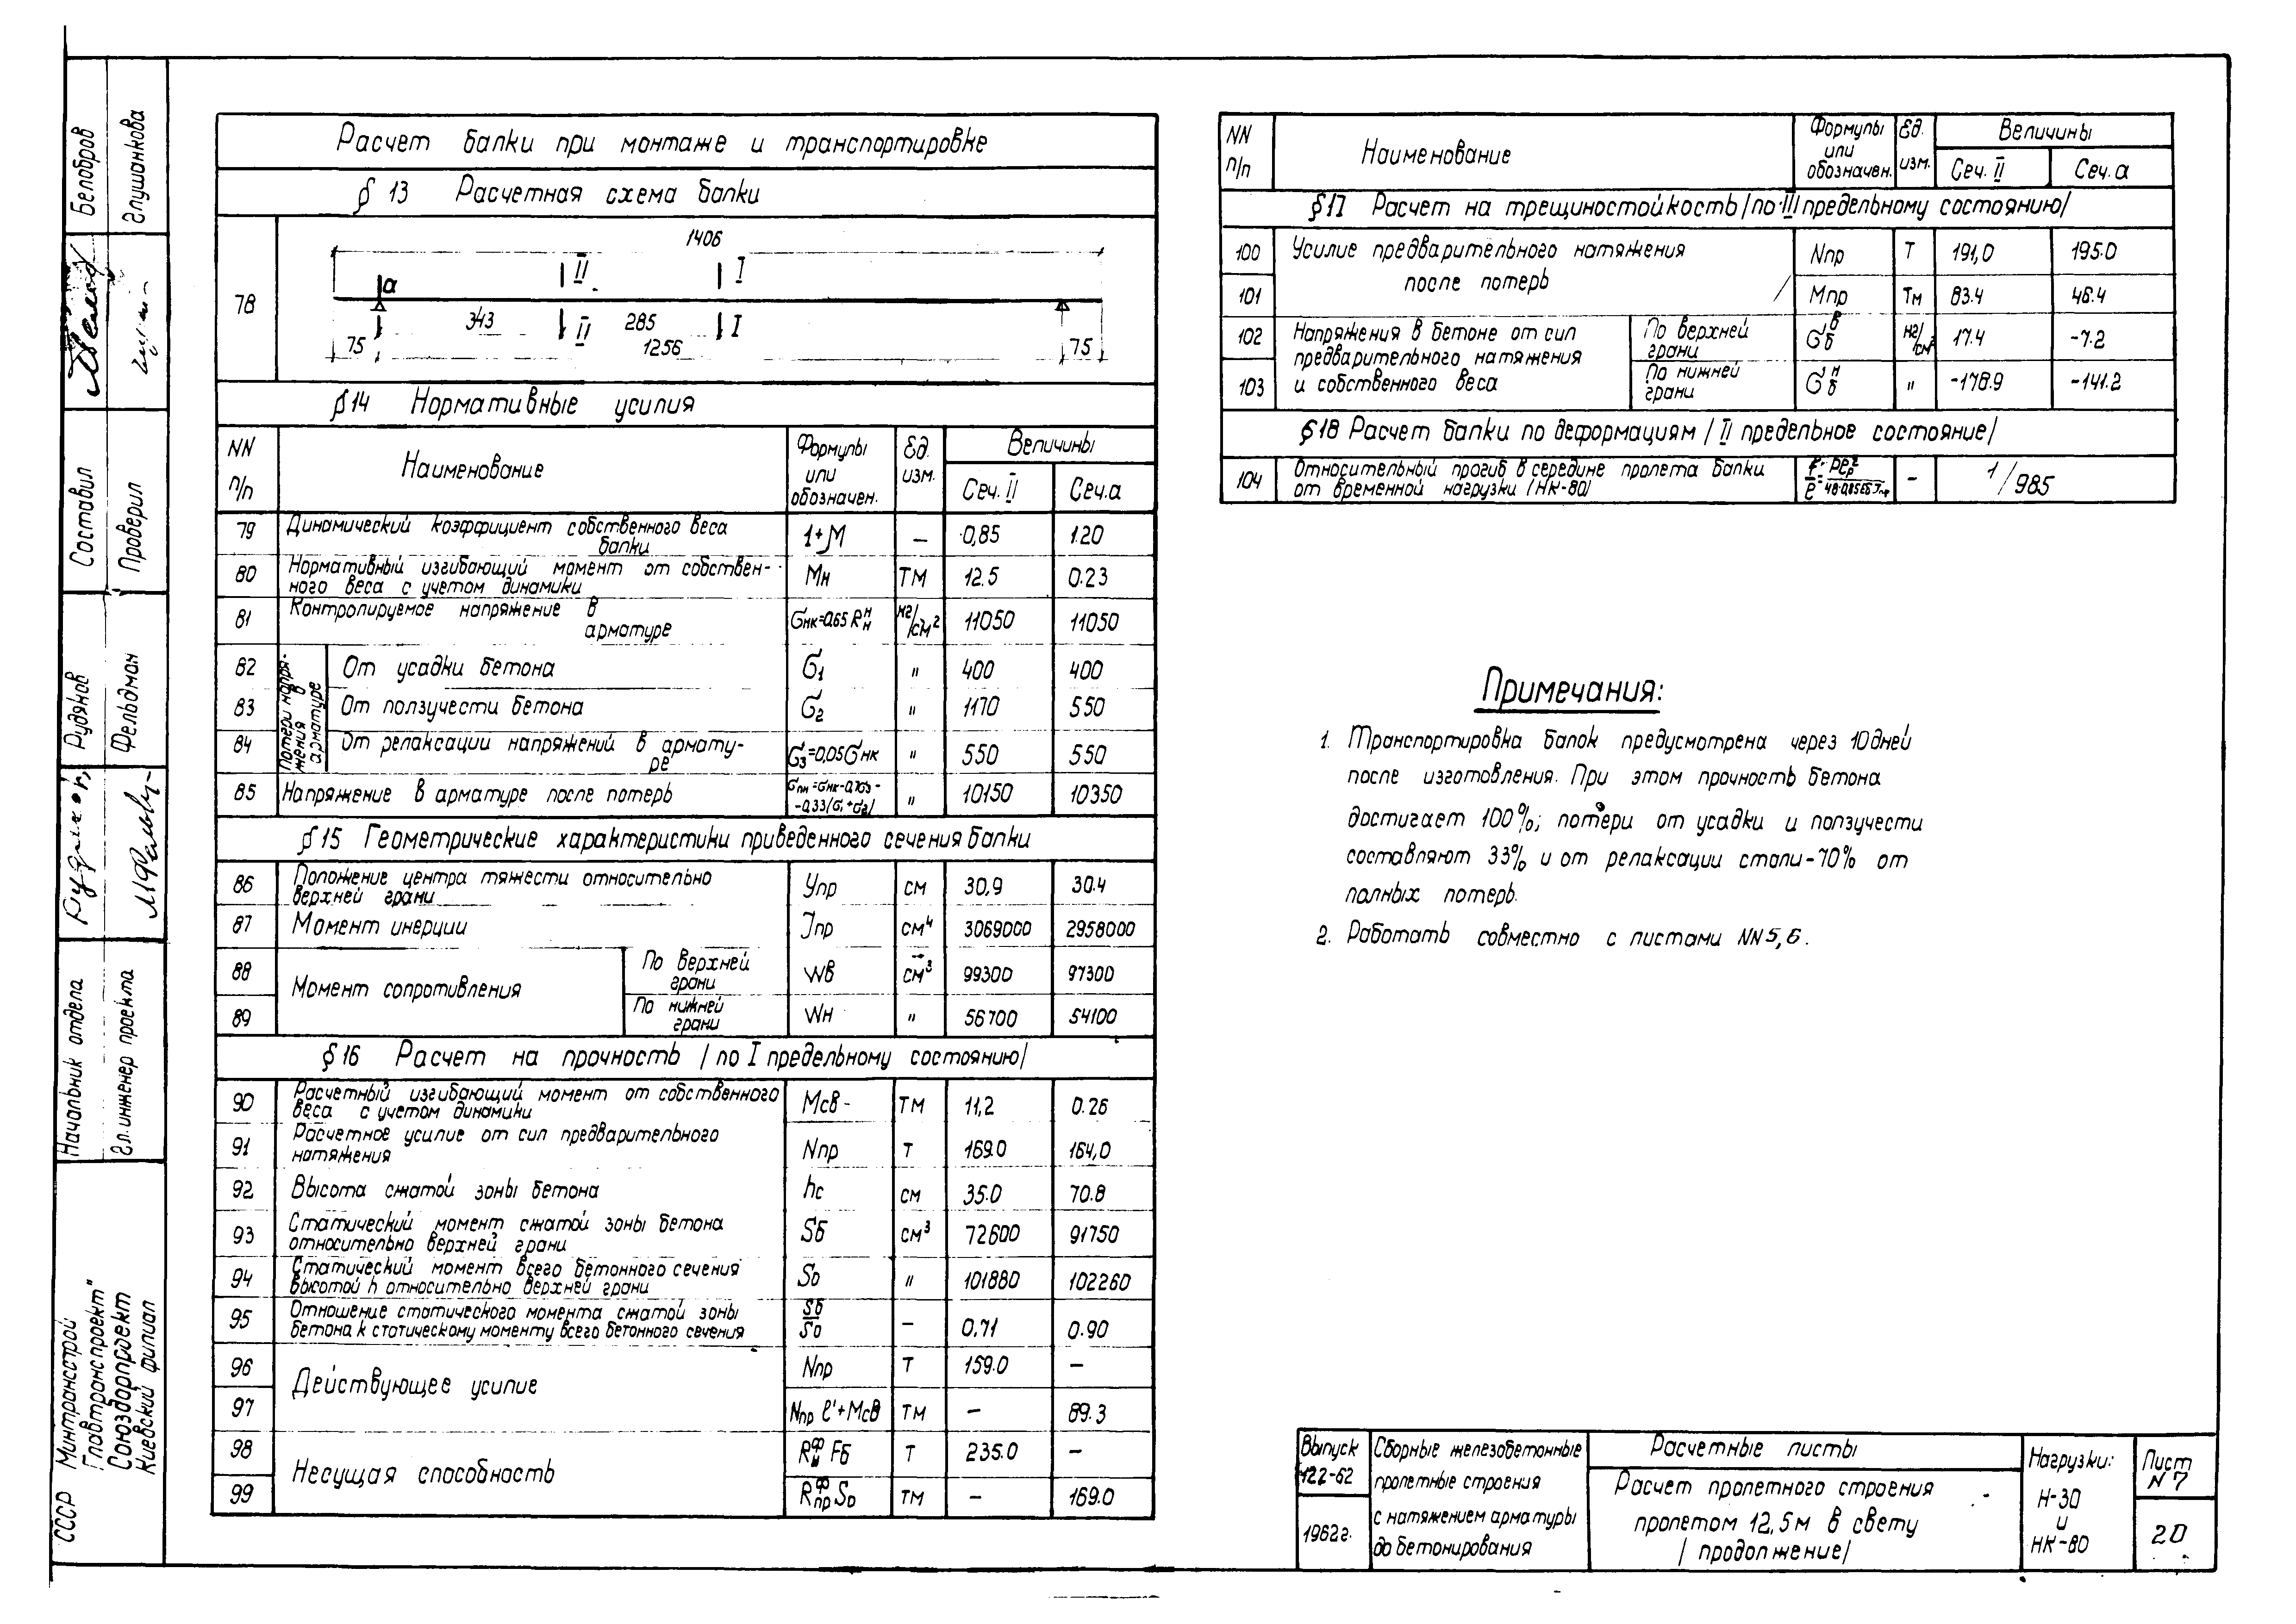 Расчет балки при монтаже и транспортировке
§ 13 Расчетная схема балки
78
1406
II I
а
343 II 285 I
75 1256 75
§ 14 Нормативные усилия
NN п/п Наименование Формулы или обозначен. Ед. изм. Величины
Сеч. II Сеч. а
79 Динамический коэффициент собственного веса балки 1+М — 0,85 1.20
80 Нормативный изгибающий момент от собственного веса с учетом динамики Мн ТМ 12.5 0.23
81 Контролируемое напряжение в арматуре σнк=0,65 Rнн кг/см² 11050 11050
Потери напряжения в арматуре
82 От усадки бетона σ1 " 400 400
83 От ползучести бетона σ2 " 1170 550
84 От релаксации напряжений в арматуре σ3=0,05σнк " 550 550
85 Напряжение в арматуре после потерь σпн=σнк-0,7σ3-0,33/σ1+σ2/ " 10150 10350
§ 15 Геометрические характеристики приведенного сечения балки
86 Положение центра тяжести относительно верхней грани Yпр см 30,9 30.4
87 Момент инерции Jпр см⁴ 3069000 2958000
88 Момент сопротивления По верхней грани Wв см³ 99300 97300
89 По нижней грани Wн " 56700 54100
§ 16 Расчет на прочность /по I предельному состоянию/
90 Расчетный изгибающий момент от собственного веса с учетом динамики Мсв ТМ 11,2 0.26
91 Расчетное усилие от сил предварительного натяжения Nпр Т 169.0 164,0
92 Высота сжатой зоны бетона hс см 35.0 70.8
93 Статический момент сжатой зоны бетона относительно верхней грани Sб см³ 72600 91750
94 Статический момент всего бетонного сечения высотой h относительно верхней грани So " 101880 102260
95 Отношение статического момента сжатой зоны бетона к статическому моменту всего бетонного сечения Sб/So — 0,71 0.90
96 Действующее усилие Nпр Т 159.0 —
97 Nпр e'+Мсв ТМ — 89.3
98 Несущая способность Rиф Fб Т 235.0 —
99 Rпрф So ТМ — 169.0
NN п/п Наименование Формулы или обозначен. Ед. изм. Величины
Сеч. II Сеч. а
§17 Расчет на трещиностойкость /по III предельному состоянию/
100 Усилие предварительного натяжения после потерь Nпр Т 191,0 195.0
101 Мпр Тм 83.4 46.4
102 Напряжения в бетоне от сил предварительного натяжения и собственного веса По верхней грани σбв кг/см² 17.4 -7.2
103 По нижней грани σбн " -178.9 -141.2
§18 Расчет балки по деформациям /II предельное состояние/
104 Относительный прогиб в середине пролета балки от временной нагрузки /НК-80/ — 1/985
Примечания:
1. Транспортировка балок предусмотрена через 10 дней
после изготовления. При этом прочность бетона
достигает 100%; потери от усадки и ползучести
составляют 33% и от релаксации стали-70% от
полных потерь.
2. Работать совместно с листами NN 5, 6.
Выпуск 122-62
1962г.
Сборные железобетонные
пролетные строения
с натяжением арматуры
до бетонирования
Расчетные листы
Расчет пролетного строения
пролетом 12,5м в свету
/продолжение/
Нагрузки:
Н-30
и
НК-80
Лист
N 7
20
Белобров
Глушанкова
Составил
Проверил
Рудяков
Фельдман
Начальник отдела
Гл. инженер проекта
СССР Минтрансстрой
"Главтранспроект"
Союздорпроект
Киевский филиал